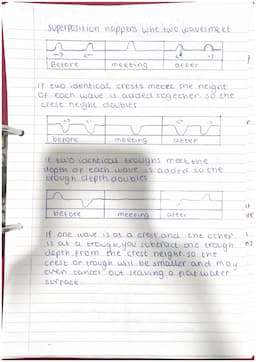 superposition happens whe two wavermeet
Before meeting after
If two identical crests meets the height
of each wave is added together. so the
crest height doubles
before meeting after
if two identical troughs meet the
depth of each wave is added so the
trough depth doubles
before meeting after
If one wave is at a crest and the other
is at a trough, you subtract one trough
depth from the crest height. so the
crest or trough will be smaller and may
even cancel out leaving a flat water
surface.